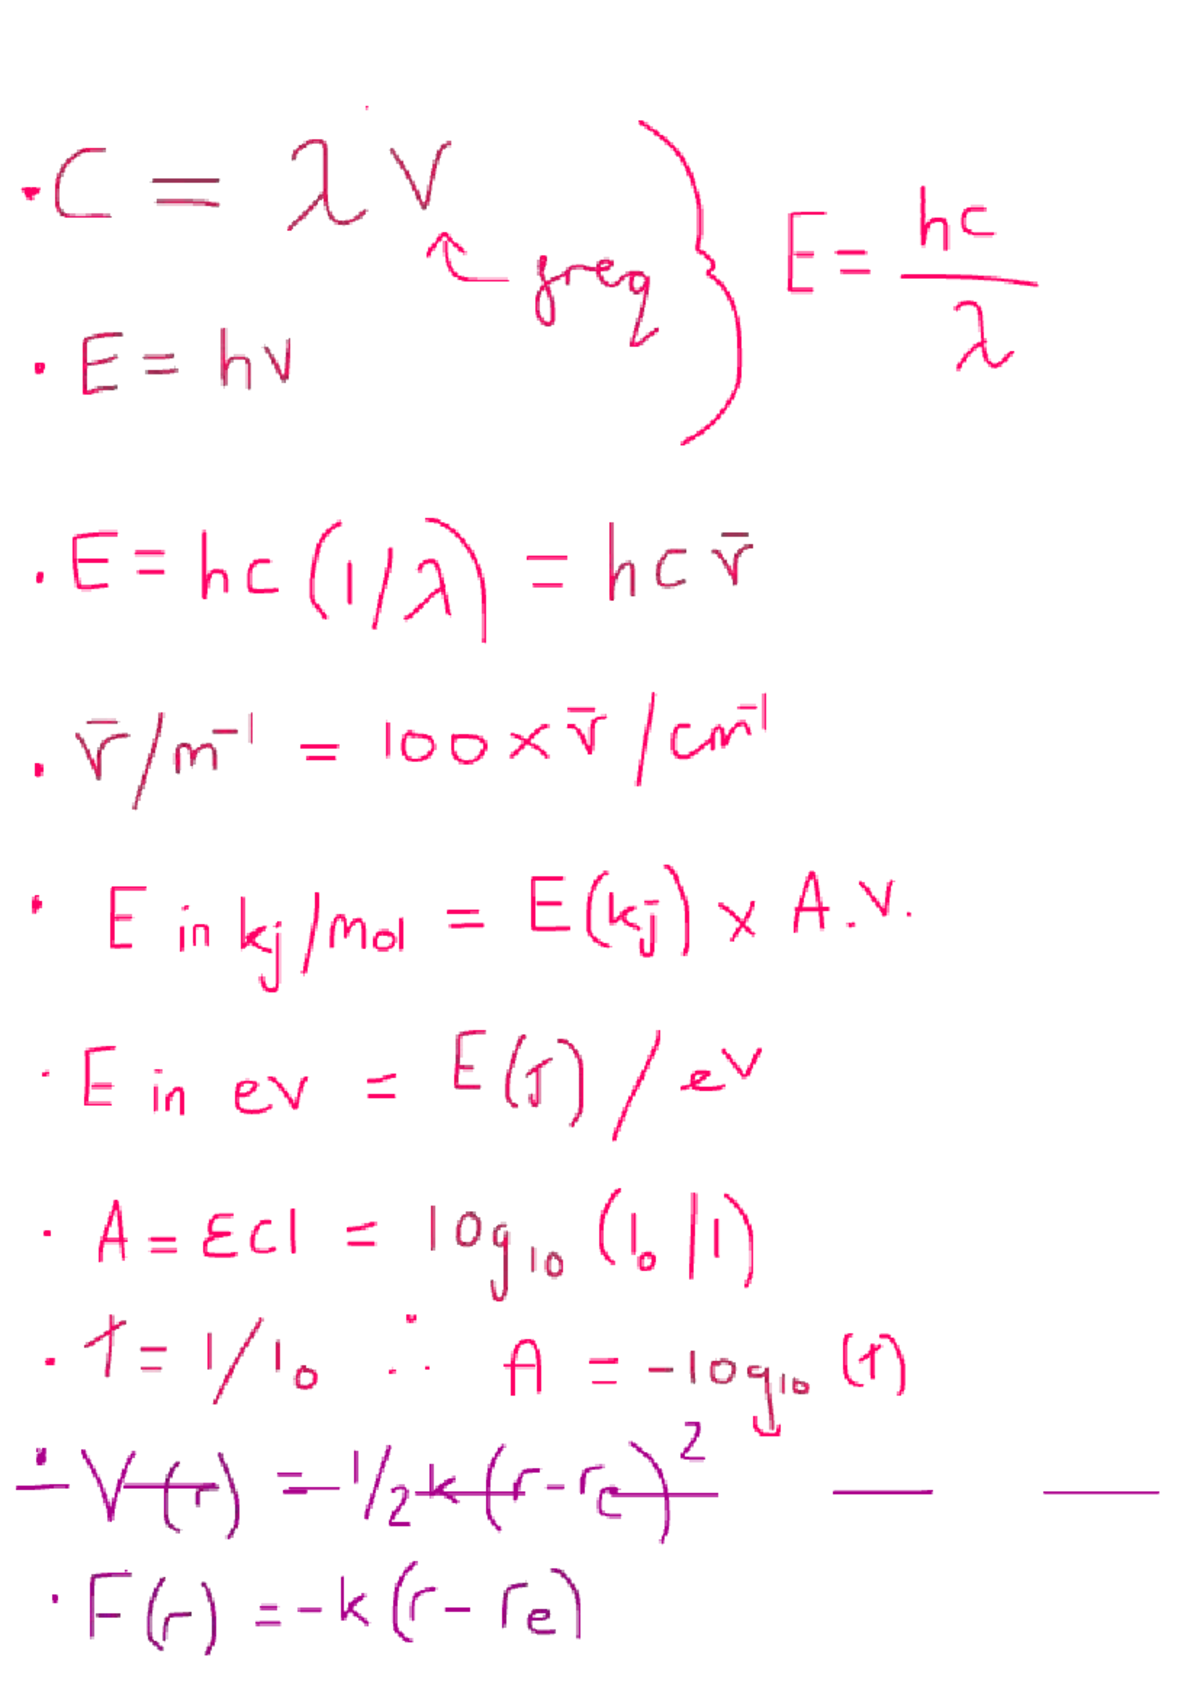 · C = λ ν
freq
E = hc / λ
· E = hν
· E = hc (1/λ) = hc ν̄
· ν̄/m⁻¹ = 100 × ν̄ /cm⁻¹
· E in kj/mol = E(kj) × A.V.
· E in eV = E(J) / eV
· A = εcl = log₁₀ (I₀/I)
· T = I/I₀ ∴ A = -log₁₀ (T)
· V(r) = 1/2 k (r-rₑ)²
· F(r) = -k (r-rₑ)